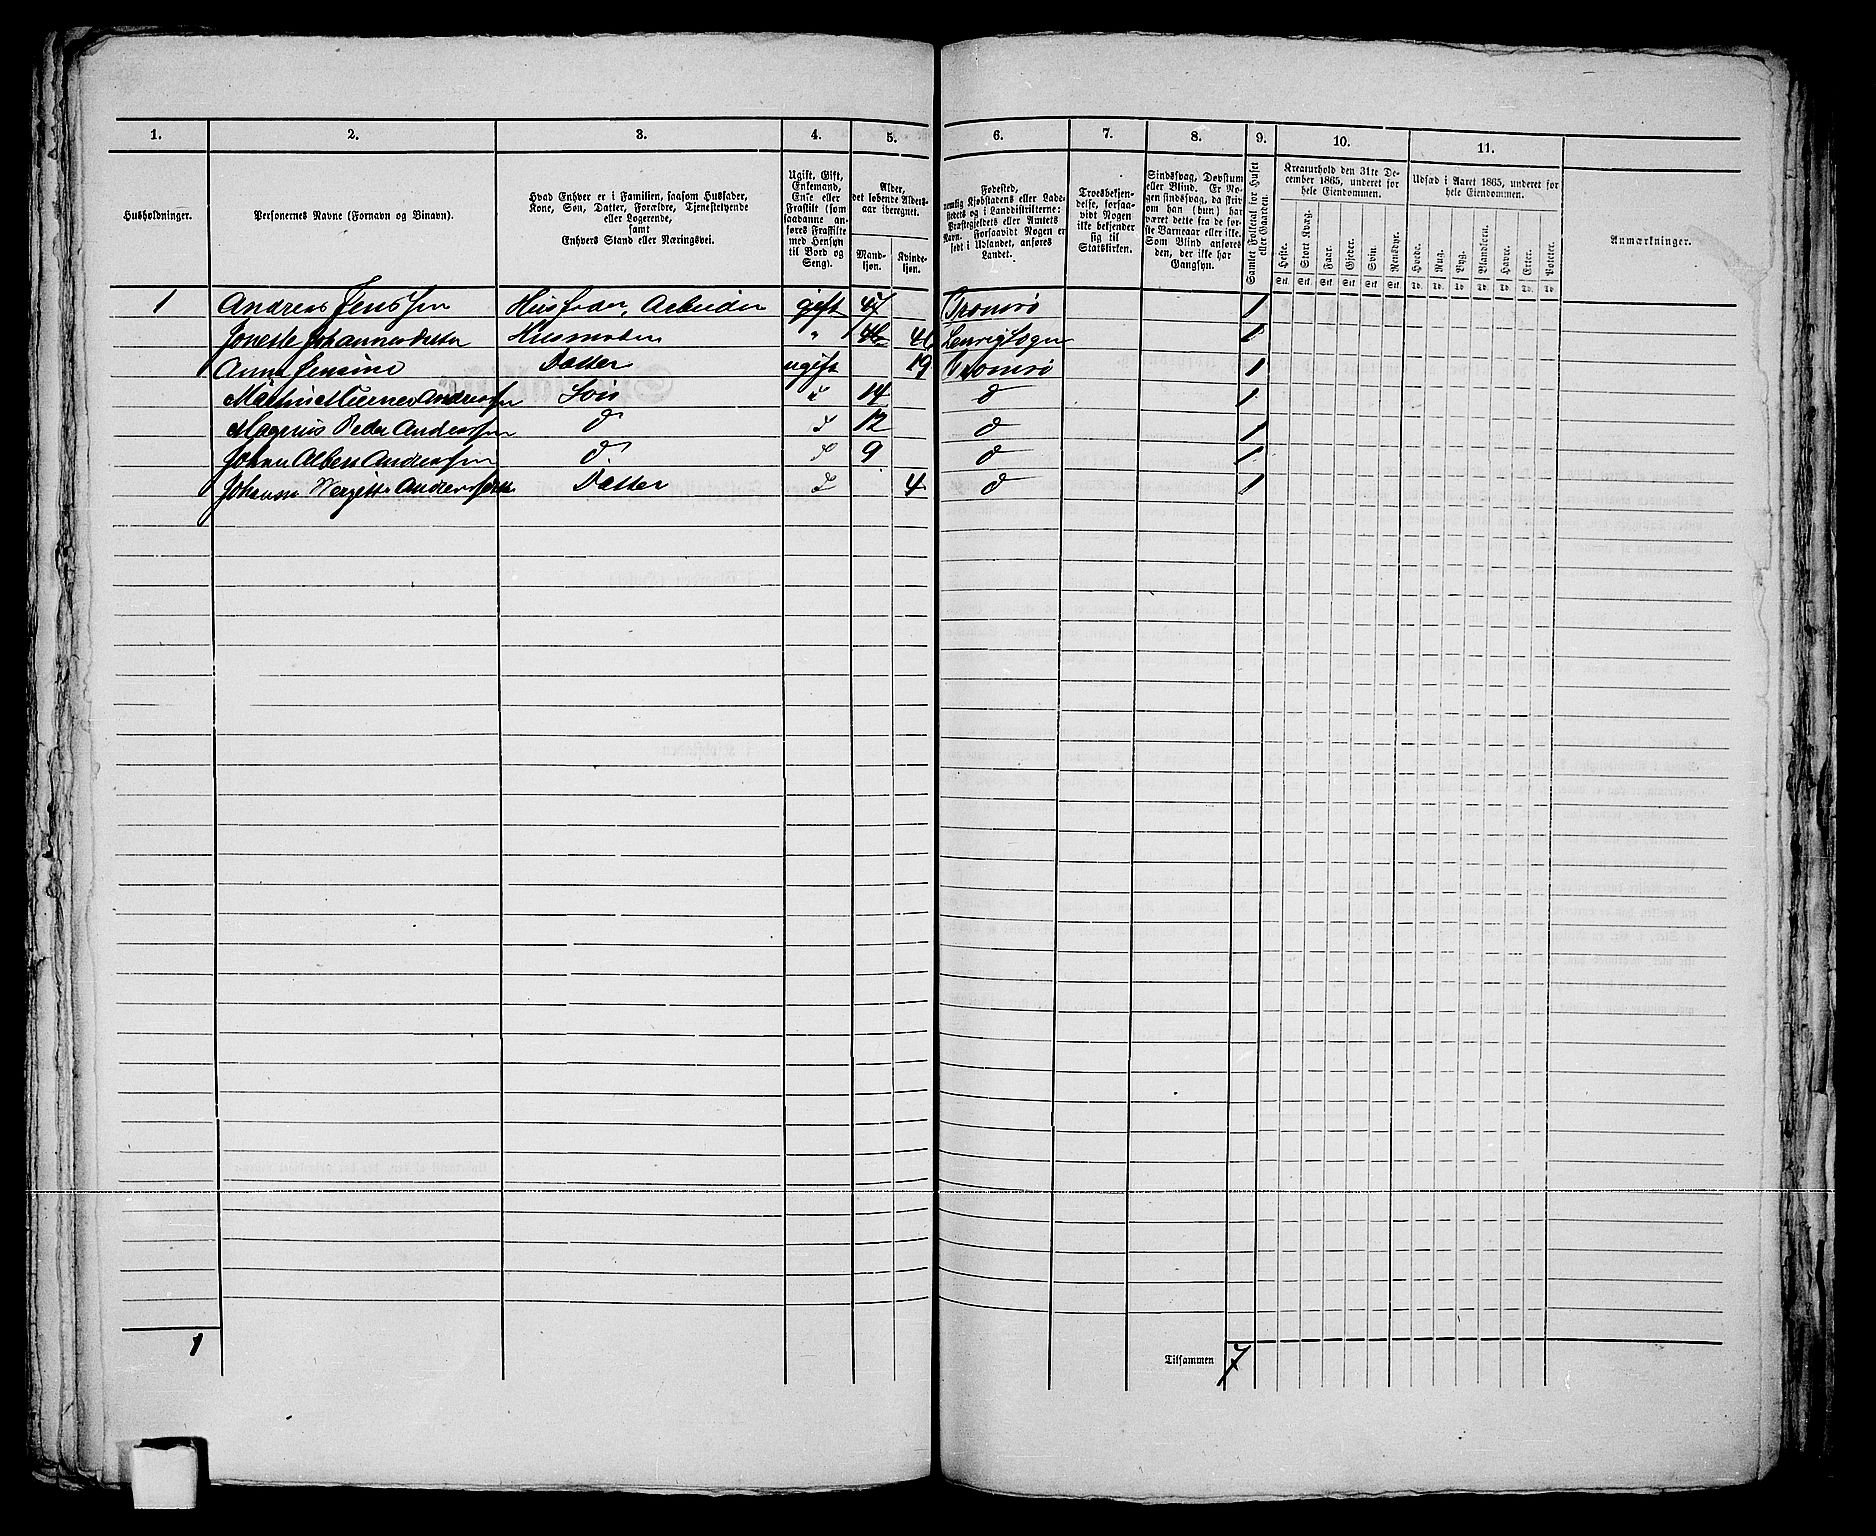 1. 2. 3. 4. 5. 6. 7. 8. 9. 10. 11.
Husholdninger.
Personernes Navne (Fornavn og Binavn).
Hvad Enhver er i Familien, saasom Husfader,
Kone, Søn, Datter, Forældre, Tjenestetyende
eller Logerende,
samt
Enhvers Stand eller Næringsvei.
Ugift, Gift,
Enkemand,
Enke eller
Fraskilt (som
saadanne an-
føres Fraskilte
med Hensyn
til Bord og
Seng).
Alder,
det løbende Alders-
aar iberegnet.
Mand-
kjøn.
Kvinde-
kjøn.
Fødested,
nemlig Kjøbstadens eller Lade-
stedets og i Landdistrikterne:
Præstegjeldets eller Amtets
Navn. Forsaavidt Nogen er
født i Udlandet, anføres
Landet.
Troesbekjen-
delse, forsaa-
vidt Nogen
ikke bekjender
sig til
Statskirken.
Sindssvag, Døvstum
eller Blind. Er No-
gen sindssvag, da skriv
om han (hun) har
været dette fra de før-
ste Barneaar eller ikke.
Som Blind anføres
den, der ikke har
Gangsyn.
Samlet Folketal for Huset
eller Gaarden.
Kreaturhold den 31te De-
cember 1865, underet for
hele Eiendommen.
Heste. Stort Kvæg. Faar. Gjeder. Svin. Rensdyr.
Stk. Stk. Stk. Stk. Stk. Stk.
Udsæd i Aaret 1865, underet for
hele Eiendommen.
Hvede. Rug. Byg. Blandkorn. Havre. Erter. Poteter.
Td. Td. Td. Td. Td. Td. Td.
Anmærkninger.
1 Andreas Jenssen Husfader, Arbeider gift 47 Tromsø 1
Husmoder " 46 1
Anna Jensine Datter ugift 19 Tromsø 1
Andreassen Søn " 14 d 1
Magnus Peder Andreassen d d 12 d 1
Johan Albert Andreassen d d 9 d 1
Andreasdatter Datter d 4 d 1
1
Tilsammen 7